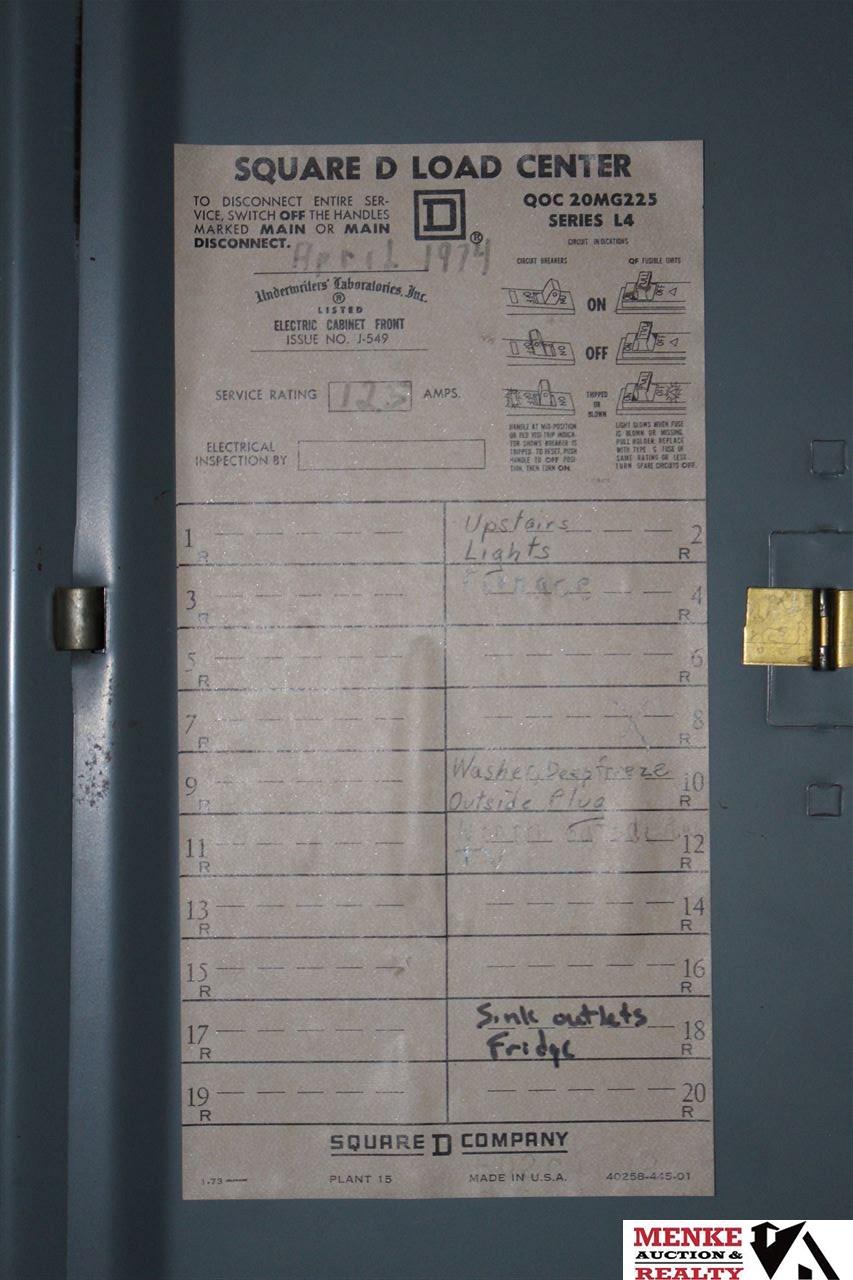 SQUARE D LOAD CENTER
TO DISCONNECT ENTIRE SER-
VICE, SWITCH OFF THE HANDLES
MARKED MAIN OR MAIN
DISCONNECT.
D ®
QOC 20MG225
SERIES L4
April 1974
Underwriters' Laboratories, Inc.
®
LISTED
ELECTRIC CABINET FRONT
ISSUE NO. J-549
SERVICE RATING 125 AMPS.
ELECTRICAL
INSPECTION BY
CIRCUIT INDICATIONS
CIRCUIT BREAKERS
QF FUSIBLE UNITS
ON
OFF
TRIPPED
OR
BLOWN
HANDLE AT MID-POSITION
OR RED VISI-TRIP INDICA-
TOR SHOWS BREAKER IS
TRIPPED. TO RESET, PUSH
HANDLE TO OFF POSI-
TION, THEN TURN ON.
LIGHT GLOWS WHEN FUSE
IS BLOWN OR MISSING.
PULL HOLDER, REPLACE
WITH TYPE S FUSE OF
SAME RATING OR LESS.
TURN SPARE CIRCUITS OFF.
1 R
Upstairs 2
Lights R
3 R
Furnace 4
R
5 R
6 R
7 R
8 R
9 R
Washer, Deepfreeze 10
Outside Plug R
11 R
12
TV R
13 R
14 R
15 R
16 R
17 R
Sink outlets 18
Fridge R
19 R
20 R
SQUARE D COMPANY
1-73
PLANT 15
MADE IN U.S.A.
40258-445-01
MENKE
AUCTION &
REALTY